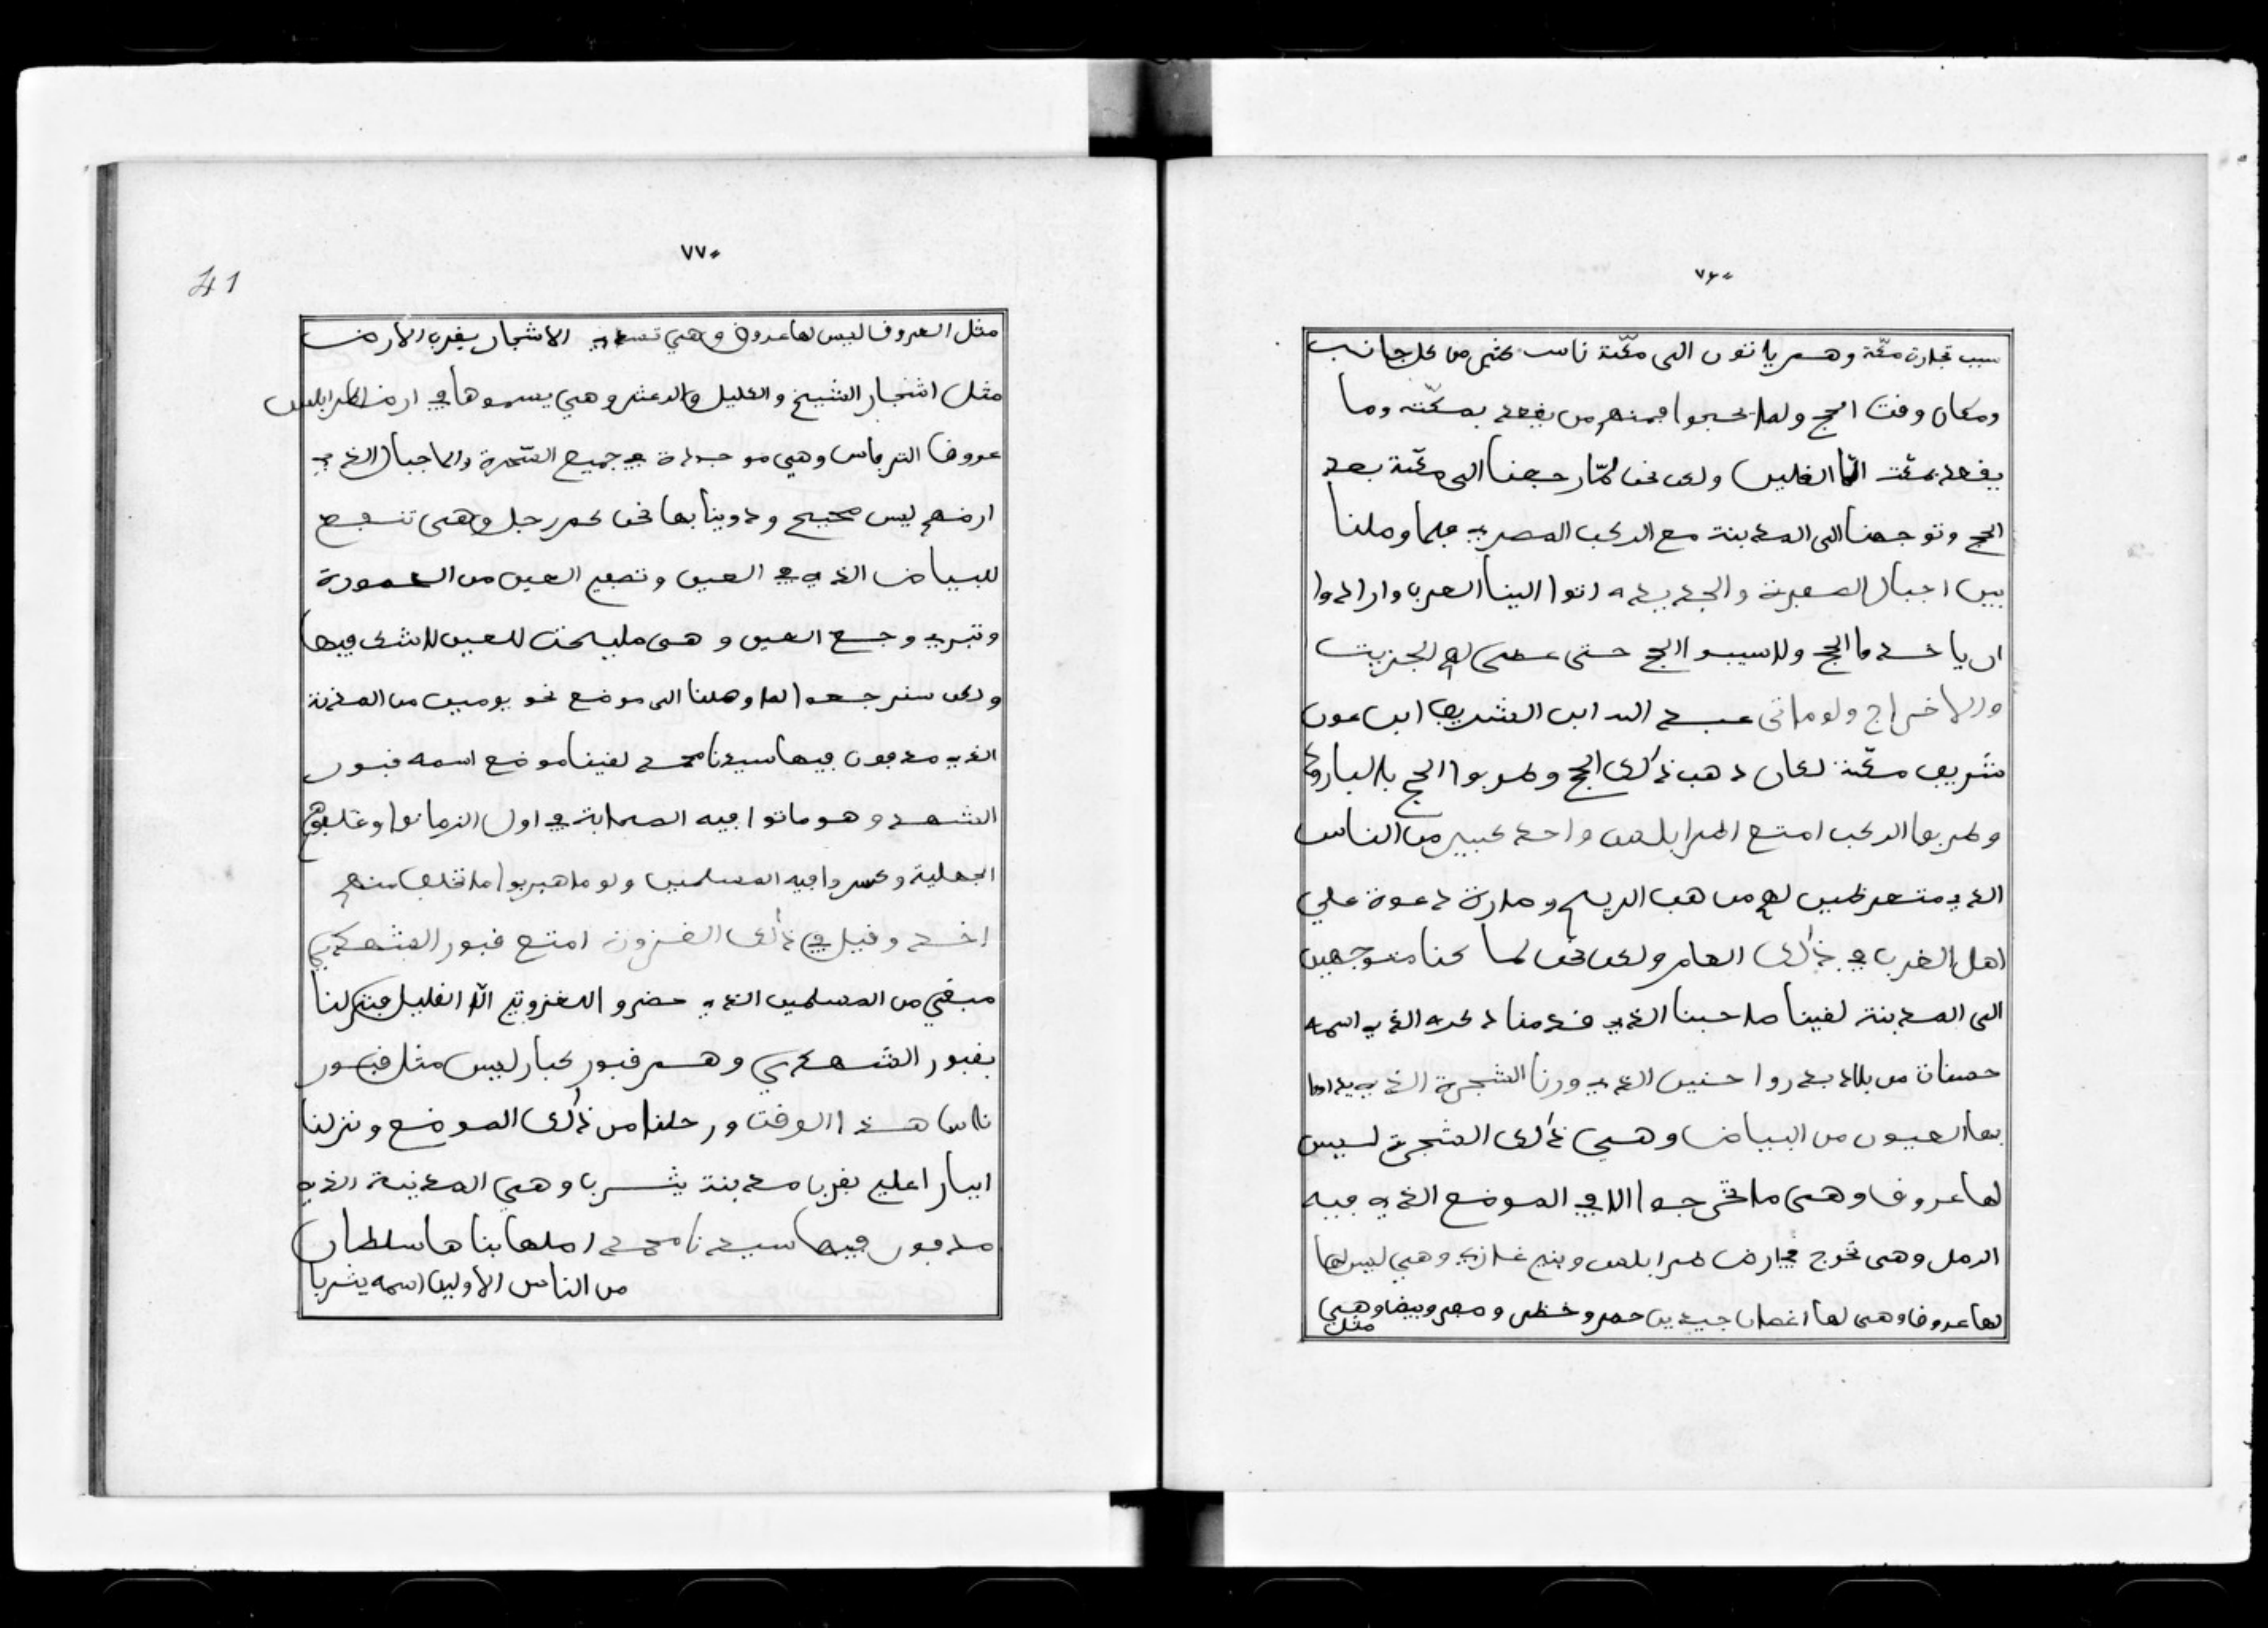 ٧٦
سبب تجارة مكّة وهم ياتون الى مكّة ناس كثير من كل جانب
ومكان وقت الحج ولما يحجوا فمنهم من يقعد بمكّته وما
يقعد بمكّت الّا القليل ولكن نحن لمّا رجعنا الى مكّة بعد
الحج وتوجهنا الى المدينة مع الركب المصري فلما وصلنا
بين اجبال الصفرة والجديده اتوا الينا العرب وارادوا
ان ياخدوا الحج ولاسيبوا الحج حتى عطى لهم الجزيت
والاخراج ولو ماتى عبد الله ابن الشريف ابن عون
شريف مكّة لكان دهب ذلك الحج وضربوا الحج بالبارود
وضربوا الركب امتع اطرابلس واحد كبير من الناس
الذي متعرضين لهم من هب الريح وصارة دعوة علي
اهل الغرب في ذلك العام ولكن نحن لما كنا متوجهين
الى المدينة لقينا صاحبنا الذي قدمنا دكره الذي اسمه
حسنات من بلاد بدروا حنين الذي ورنا الشجرة الذي يداوا
بها العيون من البياض وهي ذلك الشجرة ليس
لها عروف وهى ماتخرجوا الا في الموضع الذي فيه
الرمل وهى تخرج في ارض طرابلس وبني غازي وهي ليس لها
لها عروف وهى لها اغصان جيدين حمر وخظر وصفر وبيض وهي
مثل
٧٧
41
مثل العروف ليس لها عروق وهي الاشجار بقرب الارض
مثل اشجار الشيخ والعليل والدعشر وهي يسموها في ارض اطرابلس
عروف الترفاس وهي موجودة في جميع الصّحرة واما جبال الذي
ارضهم ليس صحيح ودوينا بها نحن كم رجل وهى تنفع
للبياض الذي في العين وتصفي العين من العمورة
وتبري وجع العين وهى مليحت للعين لاشك فيها
ولكن سنرجعوا لما وصلنا الى موضع نحو يومين من المدينة
الذي مدفون فيها سيدنا محمد لقينا موضع اسمه قبور
الشهد وهو ماتوا فيه الصحابة في اول الزمان وغلبوهم
الجهلية وكسروا فيه المسلمين ولو ما هربوا ما تخلف منهم
احد وقيل في ذلك الغزوة امتع قبور الشهدي
مبقي من المسلمين الذي حضرو الغزوتي الّا القليل فنزلنا
بقبور الشهدي وهم قبور كبار ليس مثل قبور
ناس هذا الوقت ورحلنا من ذلك الموضع ونزلنا
ابيار اعلي بقرب مدينة يثرب وهي المدينة الذي
مدفون فيها سيدنا محمد اصلها بناها سلطان
من الناس الاولين اسمه يثرب